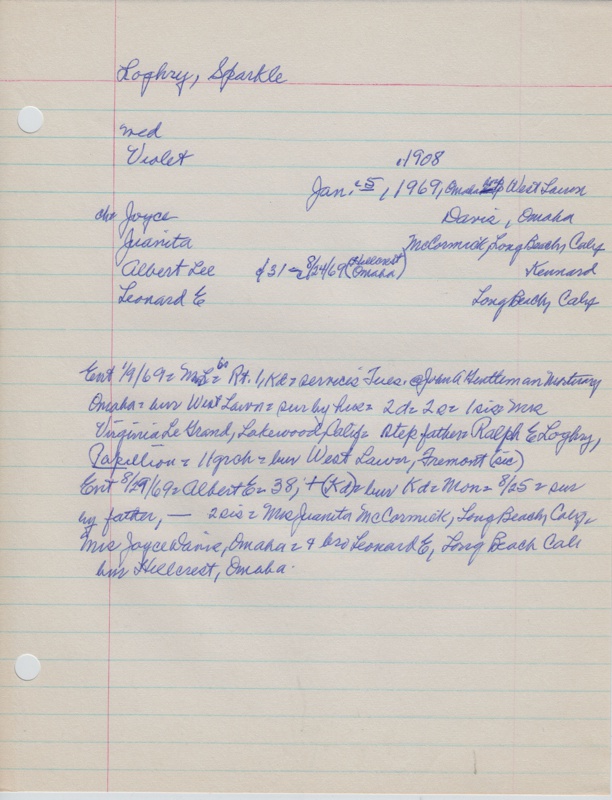 Loghry, Sparkle
med
Violet c. 1908
Jan. 5, 1969, Omaha West Lawn
ch= Joyce Davis, Omaha
Juanita McCormick, Long Beach, Calif
Albert Lee d 31 8/24/69 (Hillcrest Omaha) Kennard
Leonard E Long Beach, Calif
Ent 1/9/69= Mrs L= 60 Rt. 1, Kd= services Tues. @ John A Gentleman Mortuary
Omaha= bur West Lawn= sur by hus= 2 d= 2 s= 1 sis= Mrs
Virginia Le Grand, Lakewood, Calif= step father= Ralph E Loghry,
Papillion= 11 grch= bur West Lawn, Fremont (sic)
Ent 8/29/69= Albert E= 38, + (Kd)= bur Kd= Mon= 8/25= sur
by father, — 2 sis= Mrs Juanita McCormick, Long Beach, Calif=
Mrs Joyce Davis, Omaha= & bro Leonard E, Long Beach Cali
bur Hillcrest, Omaha.